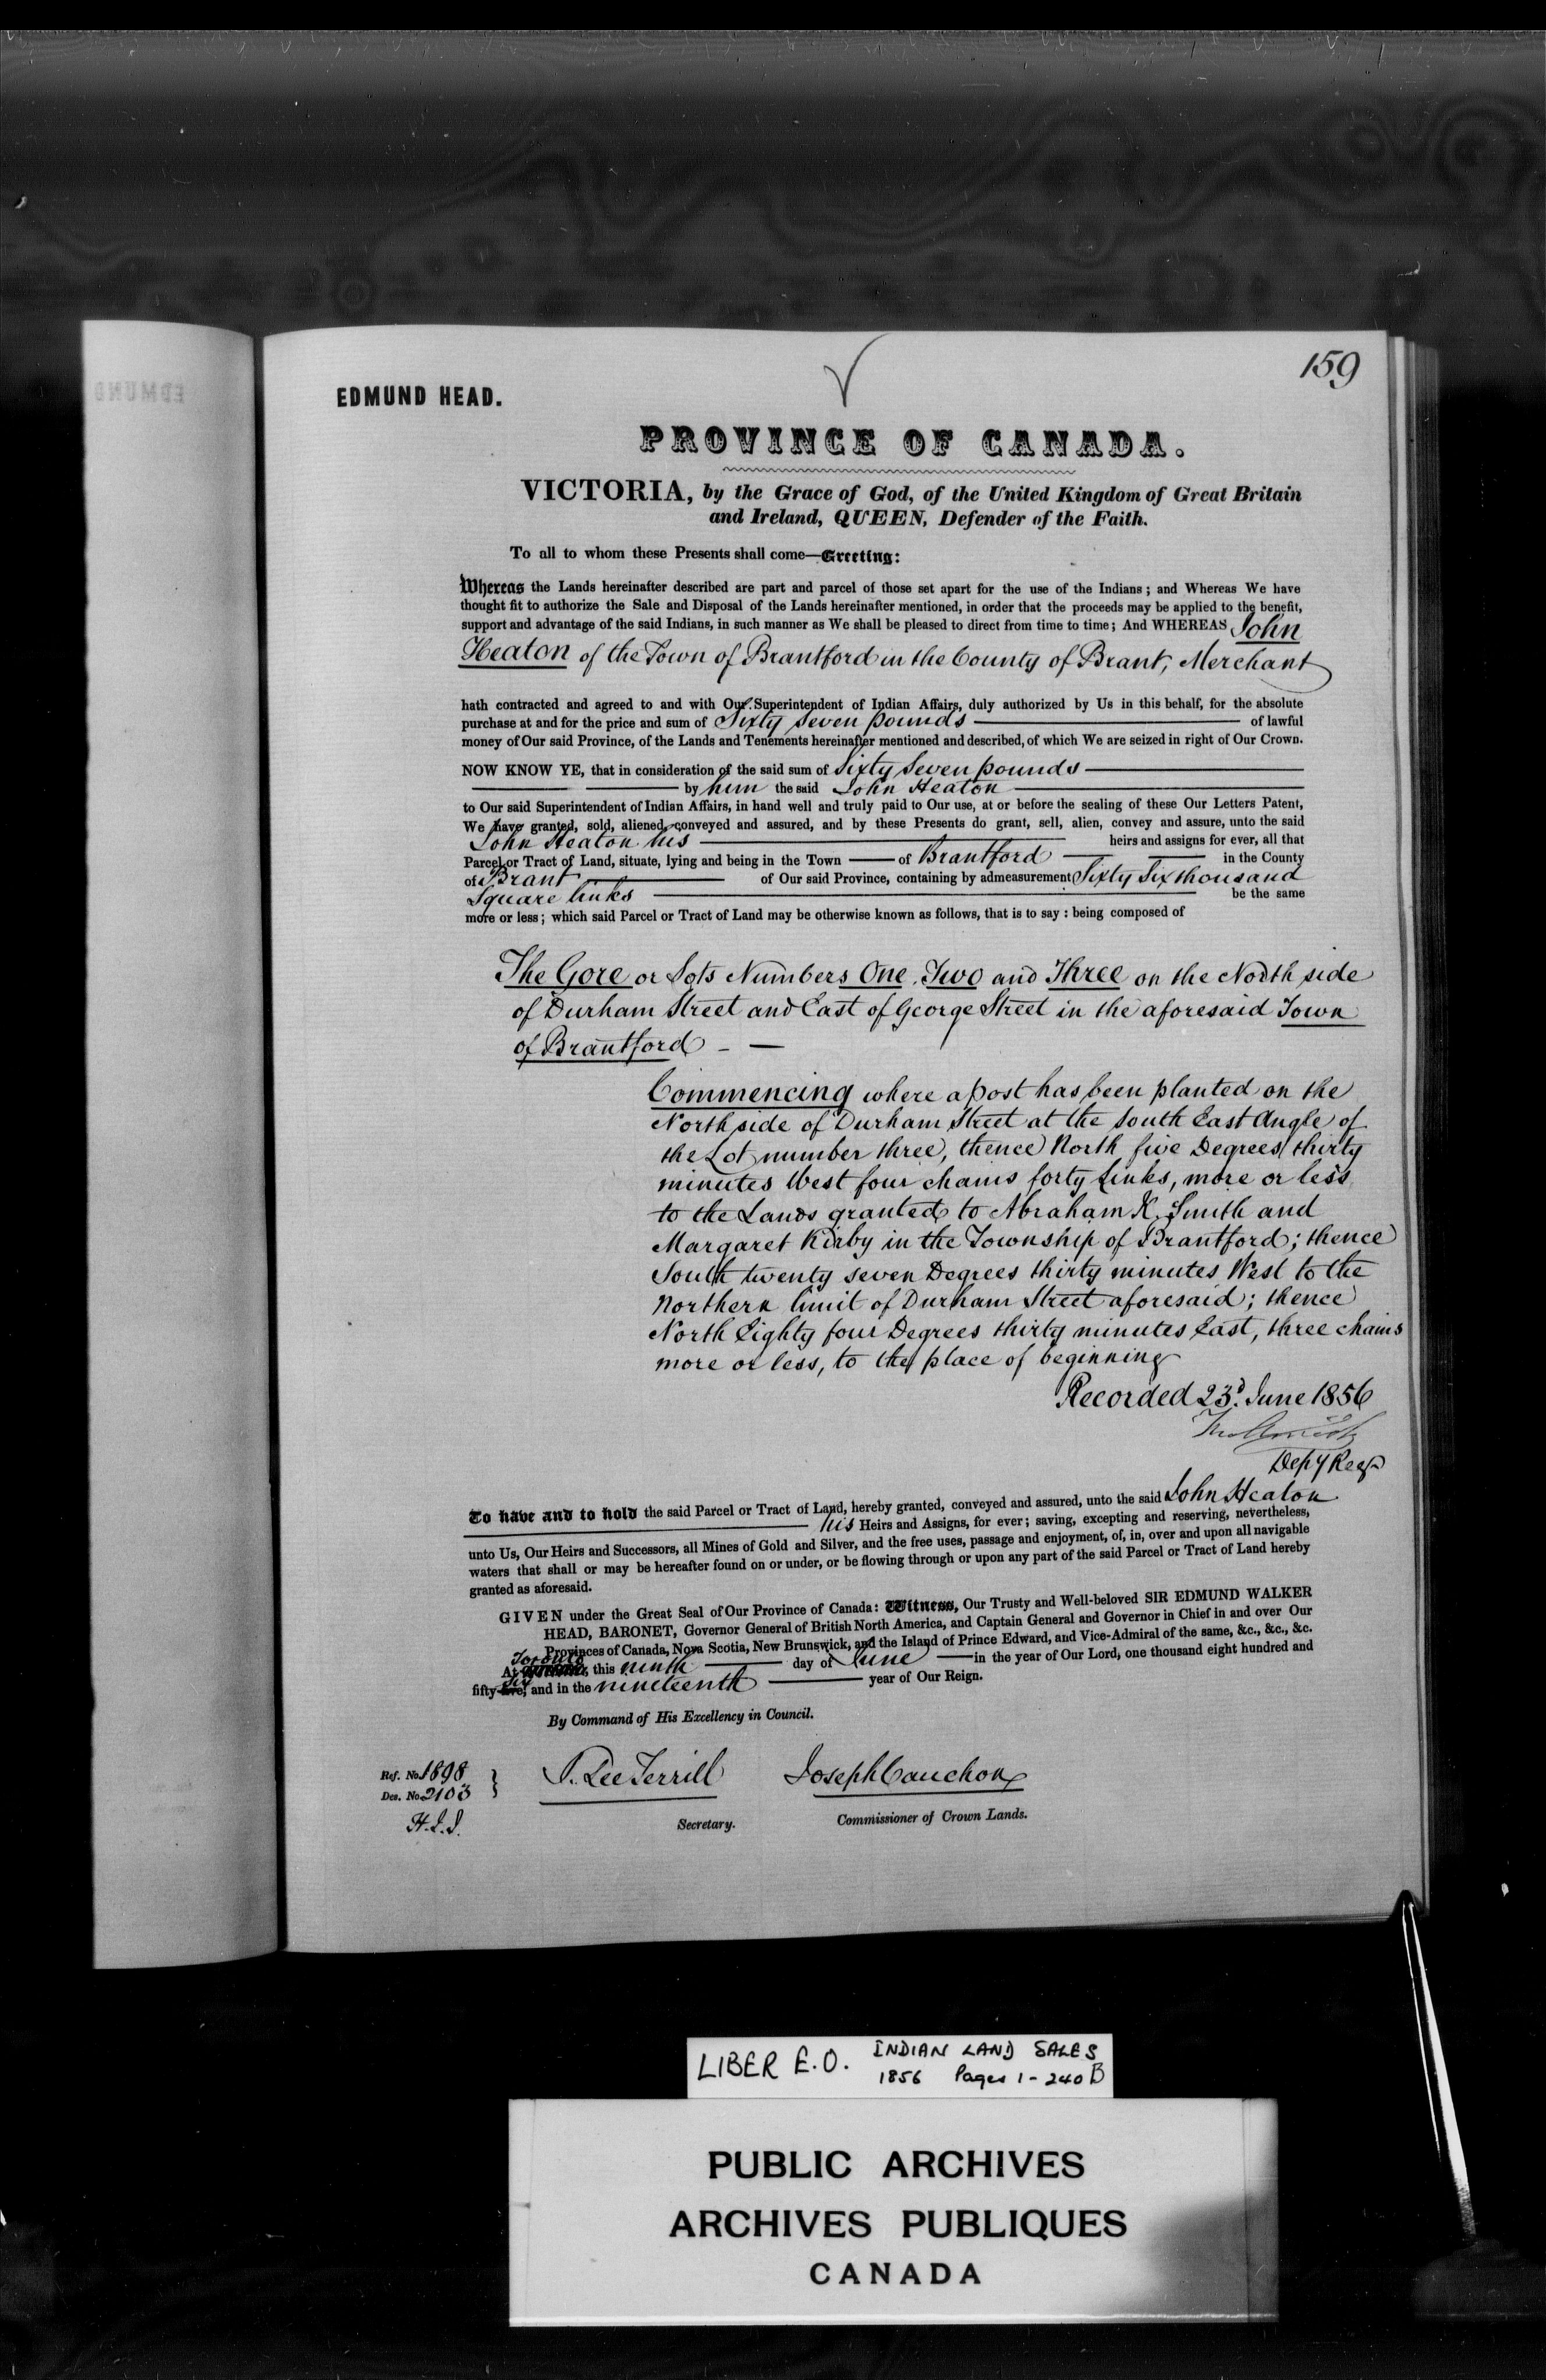 159
EDMUND HEAD.
PROVINCE OF CANADA.
VICTORIA, by the Grace of God, of the United Kingdom of Great Britain
and Ireland, QUEEN, Defender of the Faith.
To all to whom these Presents shall come—Greeting:
Whereas the Lands hereinafter described are part and parcel of those set apart for the use of the Indians; and Whereas We have
thought fit to authorize the Sale and Disposal of the Lands hereinafter mentioned, in order that the proceeds may be applied to the benefit,
support and advantage of the said Indians, in such manner as We shall be pleased to direct from time to time; And WHEREAS John
Heaton of the Town of Brantford in the County of Brant, Merchant
hath contracted and agreed to and with Our Superintendent of Indian Affairs, duly authorized by Us in this behalf, for the absolute
purchase at and for the price and sum of Sixty Seven pounds of lawful
money of Our said Province, of the Lands and Tenements hereinafter mentioned and described, of which We are seized in right of Our Crown.
NOW KNOW YE, that in consideration of the said sum of Sixty Seven pounds
by him the said John Heaton
to Our said Superintendent of Indian Affairs, in hand well and truly paid to Our use, at or before the sealing of these Our Letters Patent,
We have granted, sold, aliened, conveyed and assured, and by these Presents do grant, sell, alien, convey and assure, unto the said
John Heaton his heirs and assigns for ever, all that
Parcel or Tract of Land, situate, lying and being in the Town of Brantford in the County
of Brant of Our said Province, containing by admeasurement Sixty Six thousand
Square links be the same
more or less; which said Parcel or Tract of Land may be otherwise known as follows, that is to say: being composed of
The Gore or Lots Numbers One, Two and Three on the North side
of Durham Street and East of George Street in the aforesaid Town
of Brantford – —
Commencing where a post has been planted on the
North side of Durham Street at the South East Angle of
the Lot number three, thence North five Degrees thirty
minutes West four chains forty Links, more or less
to the Lands granted to Abraham K. Smith and
Margaret Kirby in the Township of Brantford; thence
South twenty seven Degrees thirty minutes West to the
Northern limit of Durham Street aforesaid; thence
North Eighty four Degrees thirty minutes East, three chains
more or less, to the place of beginning
Recorded 23d. June 1856
Depy Regr
To have and to hold the said Parcel or Tract of Land, hereby granted, conveyed and assured, unto the said John Heaton
his Heirs and Assigns, for ever; saving, excepting and reserving, nevertheless,
unto Us, Our Heirs and Successors, all Mines of Gold and Silver, and the free uses, passage and enjoyment, of, in, over and upon all navigable
waters that shall or may be hereafter found on or under, or be flowing through or upon any part of the said Parcel or Tract of Land hereby
granted as aforesaid.
GIVEN under the Great Seal of Our Province of Canada: Witness, Our Trusty and Well-beloved SIR EDMUND WALKER
HEAD, BARONET, Governor General of British North America, and Captain General and Governor in Chief in and over Our
Provinces of Canada, Nova Scotia, New Brunswick, and the Island of Prince Edward, and Vice-Admiral of the same, &c., &c., &c.
At Toronto, this ninth day of June in the year of Our Lord, one thousand eight hundred and
fifty-five, six and in the nineteenth year of Our Reign.
By Command of His Excellency in Council.
Ref. No. 1898
Des. No. 2103
T. Lee Terrill
Joseph Cauchon
Secretary.
Commissioner of Crown Lands.
LIBER E.O. INDIAN LAND SALES
1856 Pages 1-240B
PUBLIC ARCHIVES
ARCHIVES PUBLIQUES
CANADA